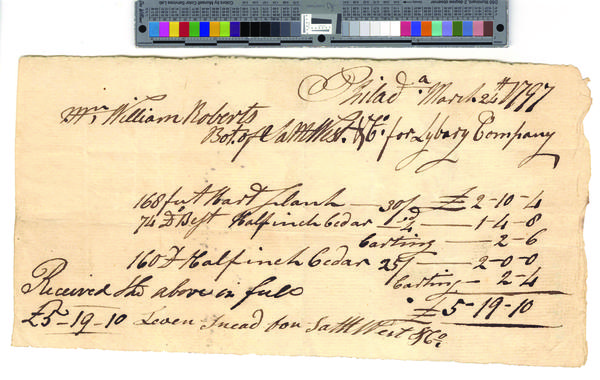 Philada. March 24th 1797
Mr. William Roberts
Bot. of Saml West & Co. for Lybary Company
168 feet Hart plank — 30/ — £ 2-10-4
74 Do Best Half inch Cedar — 1-4-8
Carting — 2-6
160 F Half inch Cedar 25/ — 2-0-0
Carting — 2-4
Received the above in full £ 5-19-10
£5-19-10 Leven Snead for Saml West & Co.